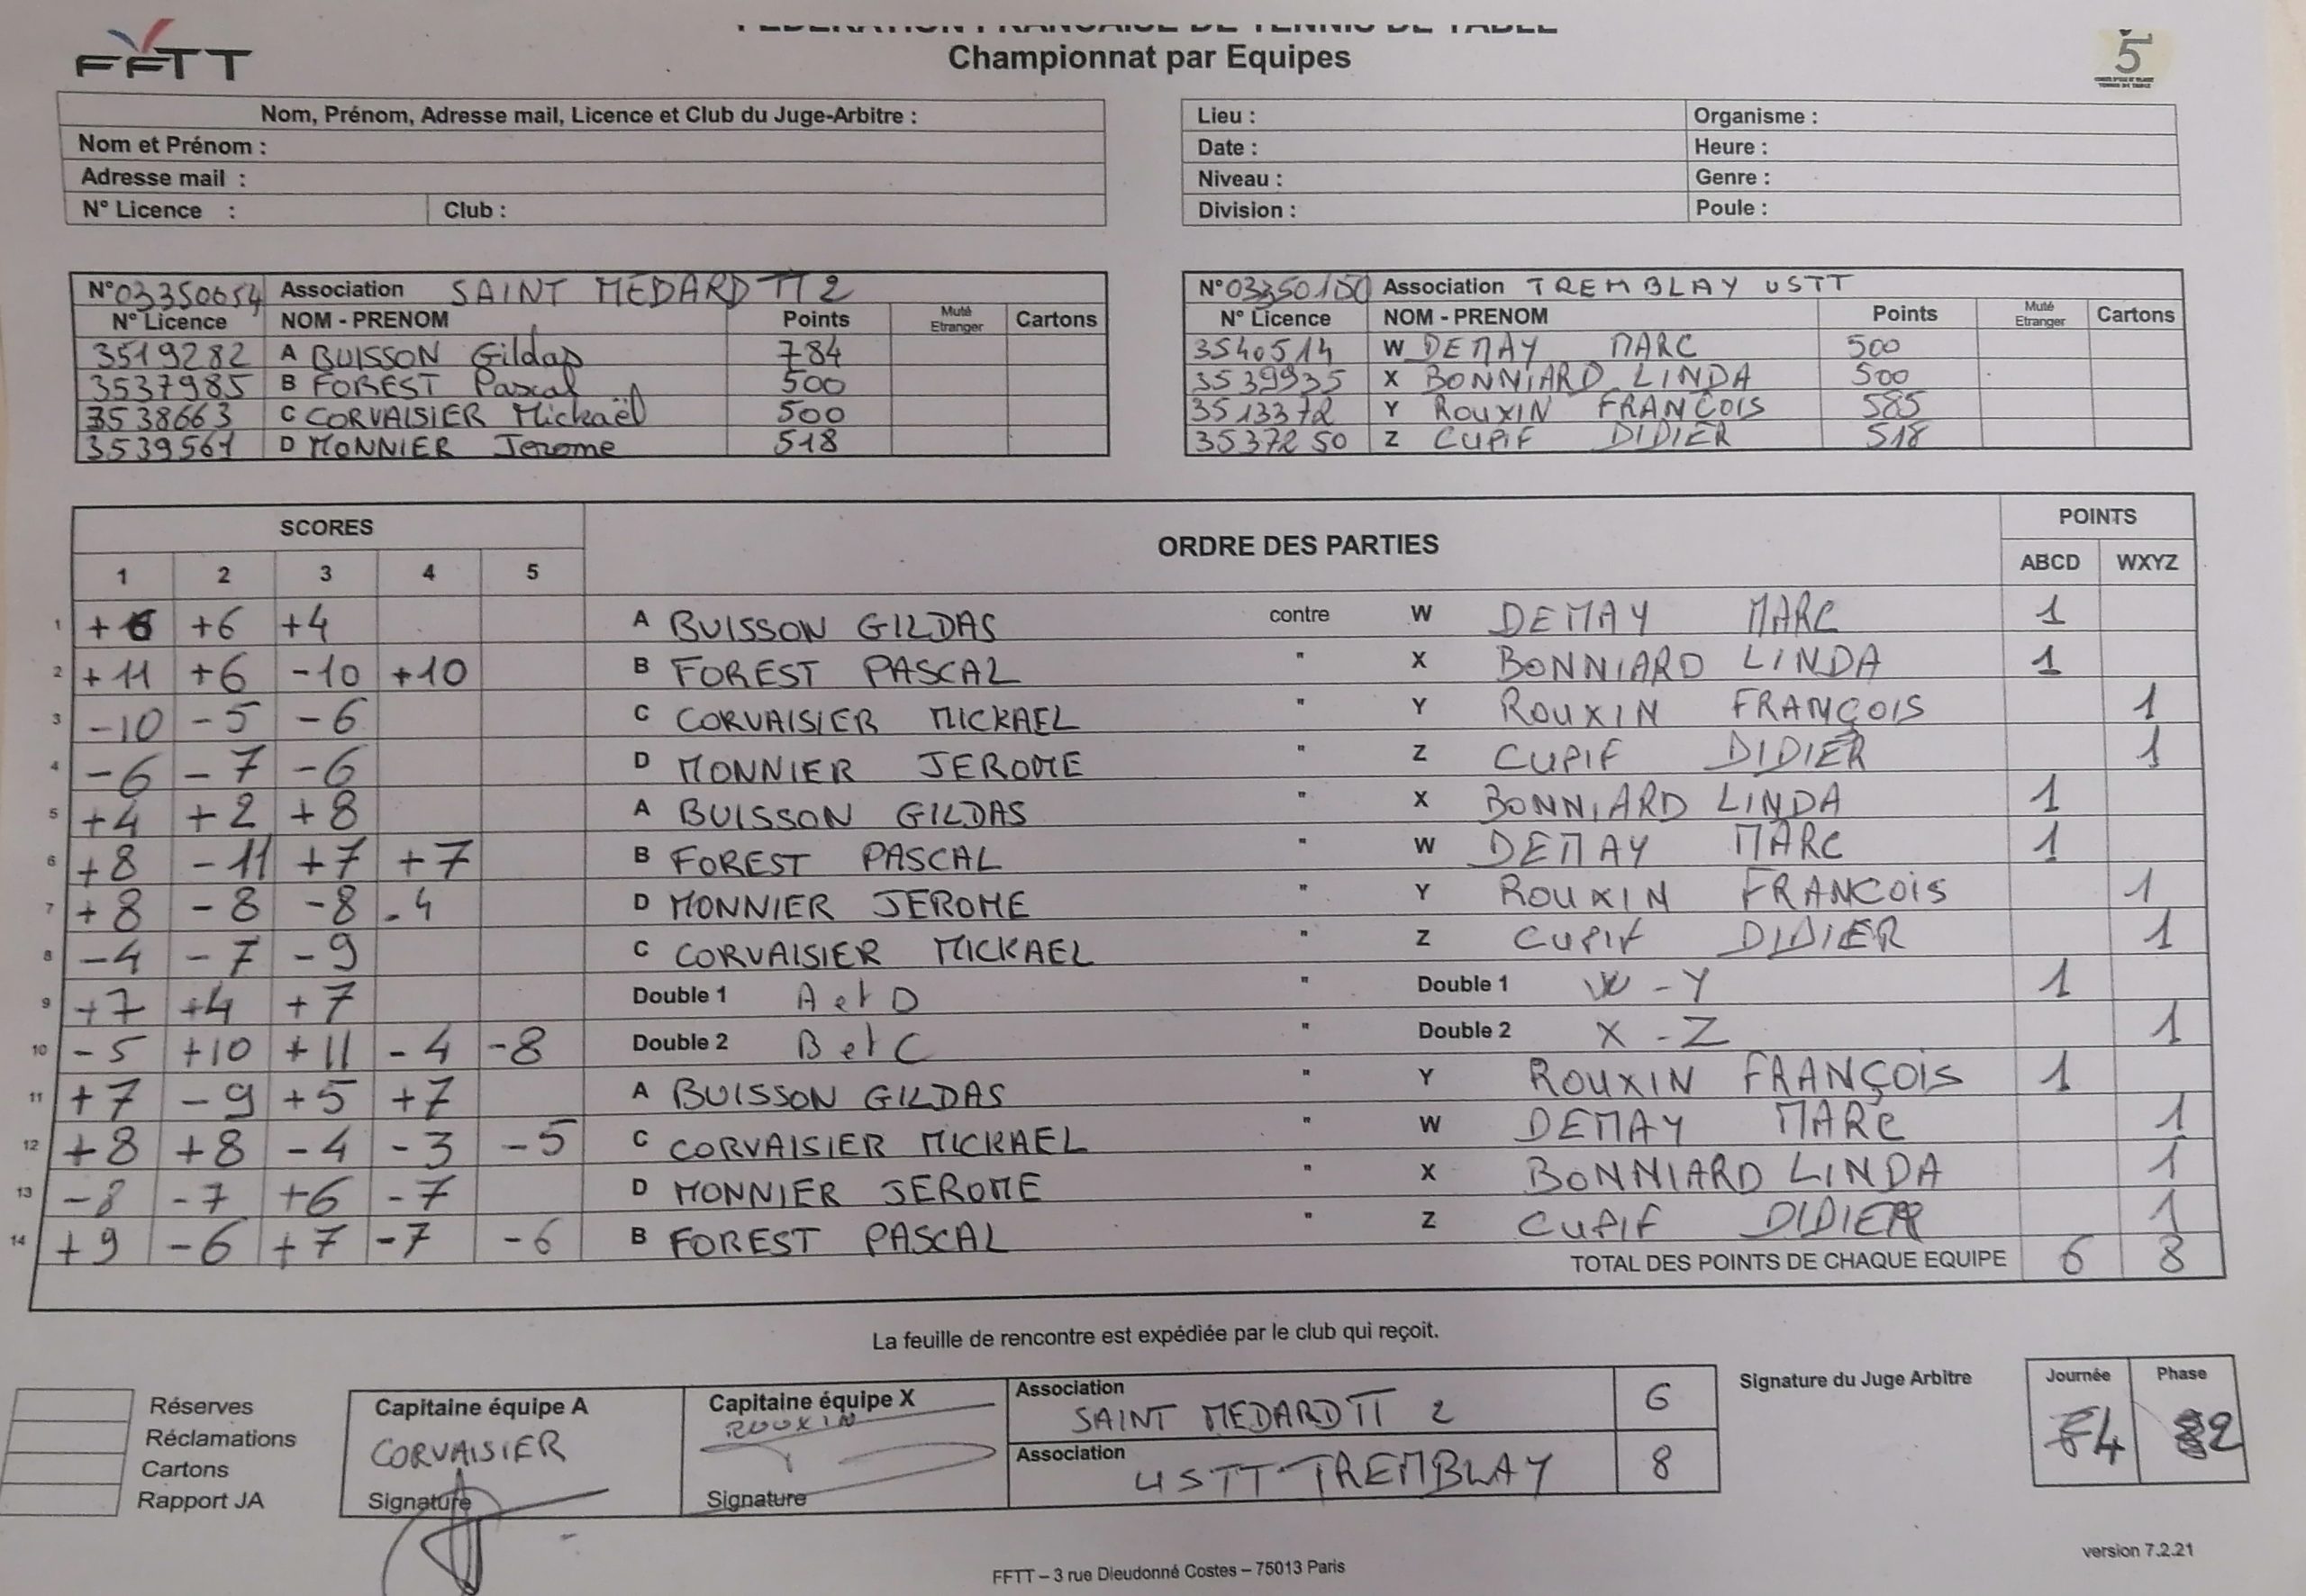 FEDERATION FRANCAISE DE TENNIS DE TABLE
FFTT
Championnat par Equipes
5
Nom, Prénom, Adresse mail, Licence et Club du Juge-Arbitre :
Nom et Prénom :
Adresse mail :
N° Licence : Club :
Lieu : Organisme :
Date : Heure :
Niveau : Genre :
Division : Poule :
N° 03350654 Association SAINT MEDARD TT 2
N° Licence NOM - PRENOM Points Muté Etranger Cartons
3519282 A BUISSON Gildas 784
3537985 B FOREST Pascal 500
3538663 C CORVAISIER Mickaël 500
3539561 D MONNIER Jerome 518
N° 03350150 Association TREMBLAY USTT
N° Licence NOM - PRENOM Points Muté Etranger Cartons
3540514 W DEMAY MARC 500
3539935 X BONNIARD LINDA 500
3513372 Y ROUXIN FRANÇOIS 585
3537250 Z CUPIF DIDIER 518
SCORES ORDRE DES PARTIES POINTS
1 2 3 4 5 ABCD WXYZ
1 +6 +6 +4 A BUISSON GILDAS contre W DEMAY MARC 1
2 +11 +6 -10 +10 B FOREST PASCAL " X BONNIARD LINDA 1
3 -10 -5 -6 C CORVAISIER MICKAEL " Y ROUXIN FRANÇOIS 1
4 -6 -7 -6 D MONNIER JEROME " Z CUPIF DIDIER 1
5 +4 +2 +8 A BUISSON GILDAS " X BONNIARD LINDA 1
6 +8 -11 +7 +7 B FOREST PASCAL " W DEMAY MARC 1
7 +8 -8 -8 -4 D MONNIER JEROME " Y ROUXIN FRANCOIS 1
8 -4 -7 -9 C CORVAISIER MICKAEL " Z CUPIF DIDIER 1
9 +7 +4 +7 Double 1 A et D " Double 1 W - Y 1
10 -5 +10 +11 -4 -8 Double 2 B et C " Double 2 X - Z 1
11 +7 -9 +5 +7 A BUISSON GILDAS " Y ROUXIN FRANÇOIS 1
12 +8 +8 -4 -3 -5 C CORVAISIER MICKAEL " W DEMAY MARC 1
13 -8 -7 +6 -7 D MONNIER JEROME " X BONNIARD LINDA 1
14 +9 -6 +7 -7 -6 B FOREST PASCAL " Z CUPIF DIDIER 1
TOTAL DES POINTS DE CHAQUE EQUIPE 6 8
La feuille de rencontre est expédiée par le club qui reçoit.
Réserves
Réclamations
Cartons
Rapport JA
Capitaine équipe A
CORVAISIER
Signature
Capitaine équipe X
ROUXIN
Signature
Association
SAINT MEDARD TT 2 6
Association
USTT TREMBLAY 8
Signature du Juge Arbitre
Journée Phase
4 2
version 7.2.21
FFTT – 3 rue Dieudonné Costes – 75013 Paris